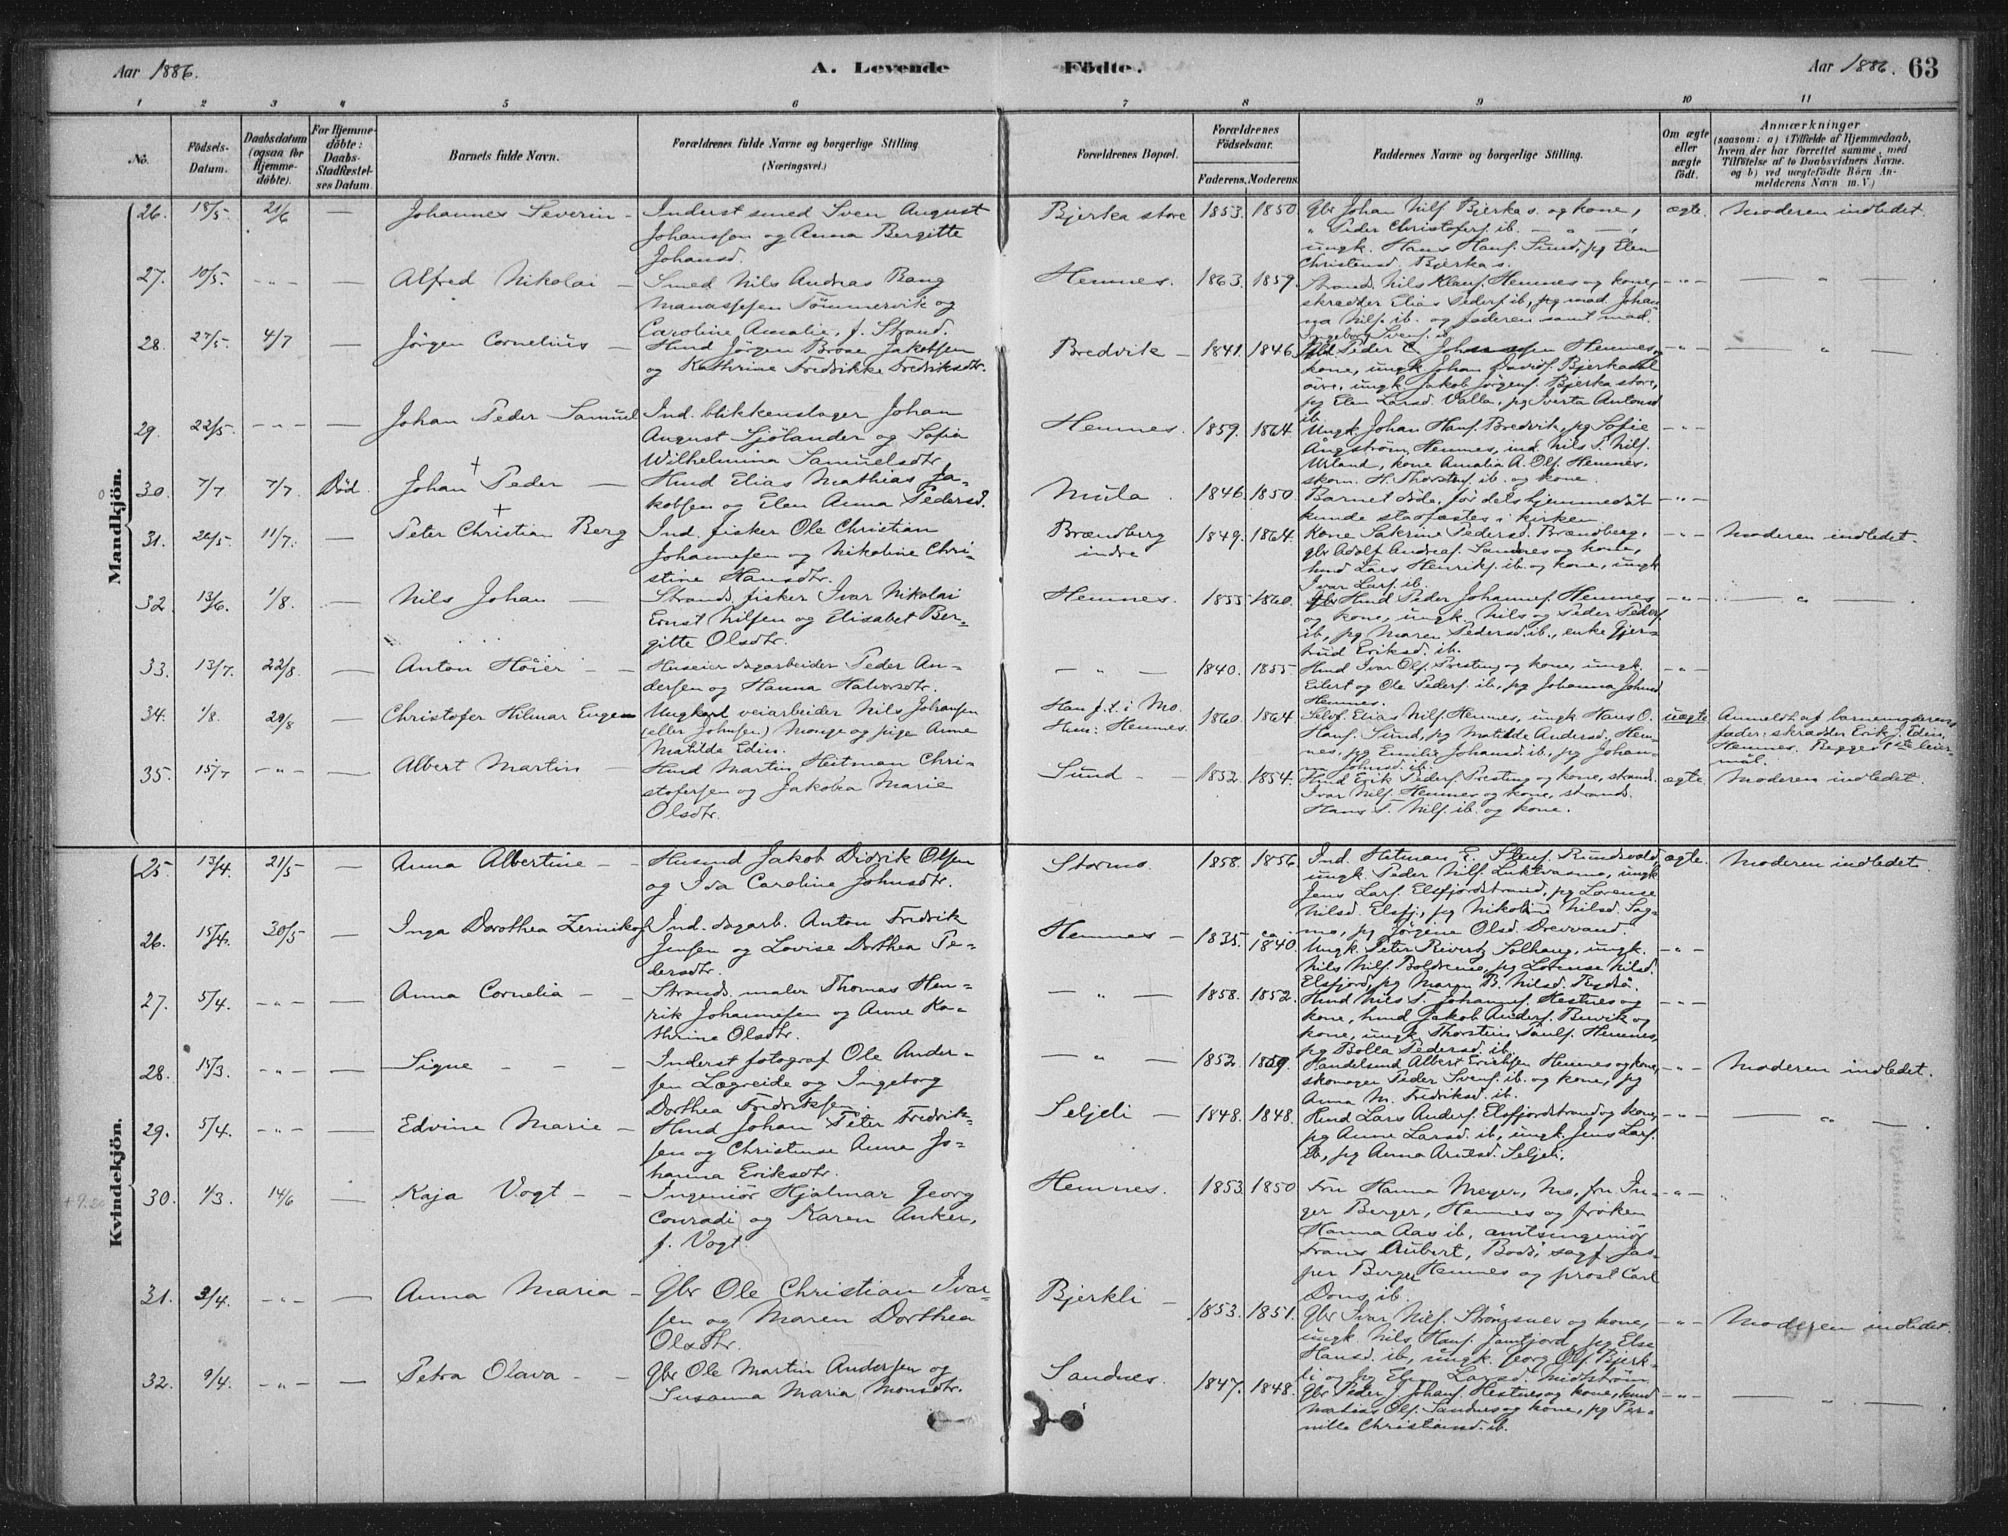 Aar 1886.
A. Levende Födte.
Aar 1886. 63
1 2 3 4 5 6 7 8 9 10 11
No.
Födsels-Datum.
Daabsdatum (ogsaa for Hjemme-döbte).
For Hjemme-döbte: Daabs-Stadfæstel-ses Datum.
Barnets fulde Navn.
Forældrenes fulde Navne og borgerlige Stilling
(Næringsvei.)
Forældrenes Bopæl.
Forældrenes Födselsaar.
Faderens. Moderens.
Faddernes Navne og borgerlige Stilling.
Om ægte eller uægte födt.
Anmærkninger
(saasom: a) i Tilfælde af Hjemmedaab,
hvem der har forrettet samme, med
Tilföielse af to Daabsvidners Navne.
og b) ved uægtefödte Börn An-
melderens Navn m. V.)
Mandkjön.
26. 18/5 21/6 — Johannes Severin — Inderst smed Sven August
Johanssen og Anna Bergitte
Johansd.
Bjerka store 1853. 1850. Gbr Johan Nilss. Bjerka s. og kone,
" Peder Christofers. ib. — " —,
ungk. Hans Hans. Sund, pg Elen
Christensd. Bjerka s.
ægte. Moderen indledet.
27. 10/5. - " - — Alfred Nikolai — Smed Nils Andreas Bang
Manassesen Tömmervik og
Caroline Amalie, f. Strand.
Hemnes. 1863. 1859. Strands. Nils Klaus. Hemnes og kone,
skrædder Elias Peders. ib, pg mad. Johan-
na Nils. ib. og faderen samt mad.
Ingeborg Svens. ib.
- " - — " —
28. 27/5 4/7 — Jörgen Cornelius — Hmd Jörgen Brose Jakobsen
og Kathrine Fredrikke Fredriksdtr.
Bredvik — 1841. 1846. Peder C. Johannessen Hemnes og
kone, ungk. Johan Davids. Bjerkadal
övre, ungk. Jakob Jörgens. Bjerka store,
pg Elen Larsd. Valla, pg Iverta Antonsd.
ib.
- " - — " —
29. 22/5. - " - — Johan Peder Samuel Ind. blikkenslager Johan
August Sjölander og Sofia
Wilhelmina Samuelsdtr.
Hemnes. 1859. 1864. Ungk. Johan Hans. Bredvik, pg Sofie
Ångström, Hemnes, ind. Nils S. Nils.
Urland, kone Amalia A. Ols. Hemnes,
skom. H. Thorstens. ib. og kone.
- " -
30. 7/7 7/7. Död. Johan Peder — Hmd Elias Mathias Ja-
kobsen og Elen Anna Pedersd.
Mula. 1846. 1850. Barnet döde, för dets hjemmedaab
kunde stadfæstes i kirken.
- " -
31. 26/5. 11/7. — Peter Christian Berg Ind. fisker Ole Christian
Johannesen og Nikoline Chri-
stine Hansdtr.
Brændberg
indre
1849. 1864. Kone Sakrine Pedersd. Brændberg,
gbr Adolf Andreas. Sandnes og kone,
hmd Lars Henriks. ib. og kone, ungk.
Ivar Lars. ib.
- " - Moderen indledet.
32. 13/6. 1/8. — Nils Johan — Strands. fisker Ivar Nikolai
Ernst Nilsen og Elisabet Ber-
gitte Olsdtr.
Hemnes. 1855 1860. Hmd Peder Johannes. Hemnes
og kone, ungk. Nils og Peder Peders.
ib, pg Maren Pedersd. ib., enke Gjer-
trud Eriksd. ib.
- " - — " —
33. 13/7. 22/8. — Anton Höier — Huseier dagarbeider Peder An-
dersen og Hanna Halvorsdtr.
— " — 1840. 1855. Hmd Ivar Ols. Presteng og kone, ungk.
Eilert og Ole Peders. ib., pg Johanna Johnsd.
Hemnes.
- " -
34. 1/8. 29/8 — Christofer Hilmar Eugen Ungkarl veiarbeider Nils Johansen
(eller Johnsen) Monge og pige Anne
Matilda Edin.
Han f. t. i Mo.
Hun: Hemnes.
1860. 1864. Selvf. Elias Nils. Hemnes, ungk. Hans O.
Hans. Sund, pg Matilde Andersd. Hem-
nes, pg Emilie Johansd. ib., pg Johan-
na Johnsd. ib.
uægte Anmeldt af barnemoderens
fader: skrædder Erik J. Edin,
Hemnes. Begges 1ste leier-
mål.
35. 15/7 - " - — Albert Martin Hmd Martin Heitman Chri-
stofersen og Jakobea Marie
Olsdtr.
Sund — 1852. 1854. Hmd Erik Peders. Presteng og kone, strands.
Ivar Nils. Hemnes og kone, strands.
Hans T. Nils. ib. og kone.
ægte. Moderen indledet.
Kvindekjön.
25. 13/4. 21/5 — Anna Albertine — Husmd Jakob Didrik Olsen
og Iva Caroline Johnsdtr.
Stormo. 1858. 1856. Ind. Hetman E. Stens. Rundvold,
ungk. Peder Nils. Luktvasmo, ungk.
Jens Lars. Elsfjordstrand, pg Lorense
Nilsd. Elsfj., pg Nikoline Nilsd. Sag-
mo, pg Jörgine Olsd. Drevvand.
ægte. Moderen indledet.
26. 15/4. 30/5 — Inga Dorothea Zernikof Ind. dagarb. Anton Fredrik
Jensen og Lovise Dorthea Pe-
dersdtr.
Hemnes — 1835. ca 1840. Ungk. Peter Rivertz Solhaug, ungk.
Nils Nils. Boldrene, pg Lorense Nilsd.
Elsfjord, pg Maren B. Nilsd. Rydsö.
- " -
27. 5/4. - " - — Anna Cornelia — Strands. maler Thomas Hen-
rik Johannesen og Anne Ka-
thrine Olsdtr.
— " — 1858. 1852. Hmd Nils T. Johannes. Hestnes og
kone, hmd Jakob Anders. Buvik og
kone, ungk. Thorstein Pauls. Hemnes,
pg Bolla Pedersd. ib.
- " -
28. 14/3. - " - — Signe — Inderst fotograf Ole Ander-
sen Lægreide og Ingeborg
Dorthea Fredriksen.
— " — 1852. 1859. Handelsmd Albert Eriksen Hemnes og kone,
skomager Peder Svens. ib. og kone, pg
Anna M. Fredriksd. ib.
- " - Moderen indledet.
29. 5/4. - " - — Edvine Marie — Hmd Johan Peter Fredrik-
sen og Christense Anna Jo-
hanna Eriksdtr.
Seljeli — 1848. 1848. Hmd Lars Anders. Elsfjordstrand og kone,
pg Anne Larsd. ib, ungk. Jens Lars.
ib, pg Anna Arntsd. Seljeli.
- " - — " —
30. 1/3. 14/6 — Kaja Vogt — Ingeniör Hjalmar Georg
Conradi og Karen Anker,
f. Vogt.
Hemnes. 1853. 1850. Fru Hanna Meyer, Mo, fru In-
ger Berger, Hemnes og fröken
Hanna Aas ib, amtsingeniör
Frans Aubert, Bodö, sagf. Jas-
per Berger Hemnes og prost Carl
Dons ib.
- " -
31. 2/4. - " - — Anna Maria — Gbr Ole Christian Ivar-
sen og Maren Dorthea
Olsdtr.
Bjerkli — 1853. 1851. Gbr Ivar Nils. Strömsnes og kone,
ungk. Nils Hans. Jamtjord, pg Else
Hansd. ib, ungk. Georg Ols. Bjerk-
li og pg Elen Larsd. Midtström.
- " - Moderen indledet.
32. 9/4. - " - — Petra Olava — Gbr Ole Martin Andersen og
Susanna Maria Monsdtr.
Sandnes. 1847. 1848. Gbr Peder J. Johans. Hestnes og kone, hmd
Mathias Ols. Sandnes og kone, pg Per-
nille Christiansd. ib.
- " - — " —